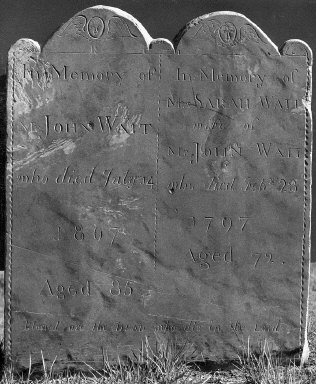 In Memory of
Mr. JOHN WAIT
who died July 14
1807
Aged 85
In Memory of
Mrs SARAH WAIT
wife of
Mr JOHN WAIT
who died Feb. 28
1797
Aged 72.
Blessed are the dead who die in the Lord